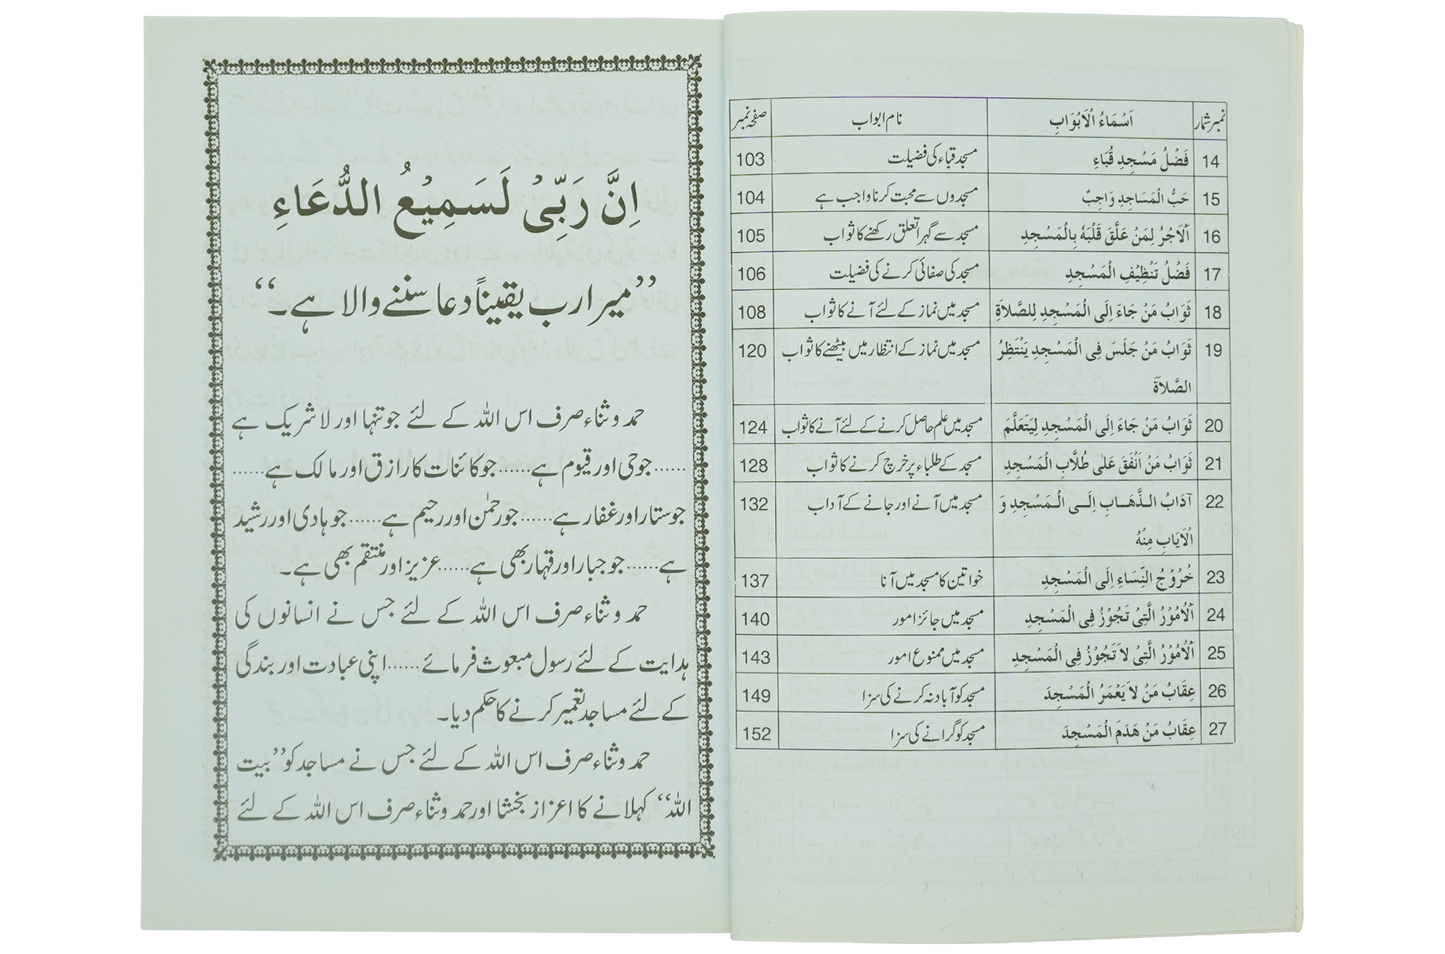 نمبر شمار اَسْمَاءُ الْاَبْوَابِ نام ابواب صفحہ نمبر
14 فَضْلُ مَسْجِدِ قُبَاءِ مسجد قباء کی فضیلت 103
15 حُبُّ الْمَسَاجِدِ وَاجِبٌ مسجدوں سے محبت کرنا واجب ہے 104
16 اَلْاَجْرُ لِمَنْ عَلَّقَ قَلْبَهٗ بِالْمَسْجِدِ مسجد سے گہرا تعلق رکھنے کا ثواب 105
17 فَضْلُ تَنْظِيْفِ الْمَسْجِدِ مسجد کی صفائی کرنے کی فضیلت 106
18 ثَوَابُ مَنْ جَاءَ اِلَى الْمَسْجِدِ لِلصَّلَاةِ مسجد میں نماز کے لئے آنے کا ثواب 108
19 ثَوَابُ مَنْ جَلَسَ فِى الْمَسْجِدِ يَنْتَظِرُ مسجد میں نماز کے انتظار میں بیٹھنے کا ثواب 120
الصَّلَاةَ
20 ثَوَابُ مَنْ جَاءَ اِلَى الْمَسْجِدِ لِيَتَعَلَّمَ مسجد میں علم حاصل کرنے کے لئے آنے کا ثواب 124
21 ثَوَابُ مَنْ اَنْفَقَ عَلٰى طُلَّابِ الْمَسْجِدِ مسجد کے طلباء پر خرچ کرنے کا ثواب 128
22 آدَابُ الذَّهَابِ اِلَى الْمَسْجِدِ وَ مسجد میں آنے اور جانے کے آداب 132
الْاَيَابِ مِنْهُ
23 خُرُوْجُ النِّسَاءِ اِلَى الْمَسْجِدِ خواتین کا مسجد میں آنا 137
24 اَلْاُمُوْرُ الَّتِىْ تَجُوْزُ فِى الْمَسْجِدِ مسجد میں جائز امور 140
25 اَلْاُمُوْرُ الَّتِىْ لَا تَجُوْزُ فِى الْمَسْجِدِ مسجد میں ممنوع امور 143
26 عِقَابُ مَنْ لَا يَعْمَرُ الْمَسْجِدَ مسجد کو آباد نہ کرنے کی سزا 149
27 عِقَابُ مَنْ هَدَمَ الْمَسْجِدَ مسجد کو گرانے کی سزا 152
اِنَّ رَبِّىْ لَسَمِيْعُ الدُّعَاءِ
’’میرا رب یقیناً دعا سننے والا ہے۔‘‘
حمد و ثناء صرف اس اللہ کے لئے جو تنہا اور لا شریک ہے
......جو حی اور قیوم ہے......جو کائنات کا رازق اور مالک ہے......
جو ستار اور غفار ہے......جو رحمٰن اور رحیم ہے......جو ہادی اور رشید
ہے......جو جبار اور قہار بھی ہے......عزیز اور منتقم بھی ہے۔
حمد و ثناء صرف اس اللہ کے لئے جس نے انسانوں کی
ہدایت کے لئے رسول مبعوث فرمائے......اپنی عبادت اور بندگی
کے لئے مساجد تعمیر کرنے کا حکم دیا۔
حمد و ثناء صرف اس اللہ کے لئے جس نے مساجد کو ’’بیت
اللہ‘‘ کہلانے کا اعزاز بخشا اور حمد و ثناء صرف اس اللہ کے لئے